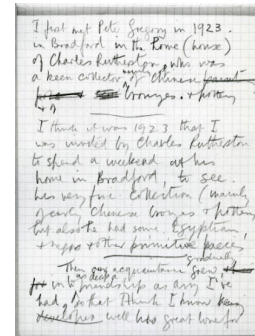 I first met Peter Gregory in 1923.
in Bradford in the home (house)
of Charles Rutherston, who was
a keen collector, mainly of Chinese
bronzes. + pottery
I think it was 1923 that I
was invited by Charles Rutherston
to spend a weekend at his
home in Bradford, to see
his very fine collection (mainly
of early Chinese bronzes + pottery
but also he had some Egyptian,
+ negro + other primitive pieces
gradually
Then our acquaintance grew
as deep a
into friendship as any I've
had, so that I think I know
well his great love for